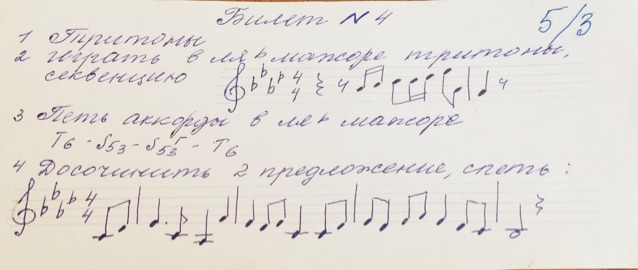 Билет N 4
5/3
1 Тритоны
2 играть в ля♭ мажоре тритоны,
секвенцию
3 Петь аккорды в ля♭ мажоре
T6 - S53 - S53г - T6
4 Досочинить 2 предложение, спеть: